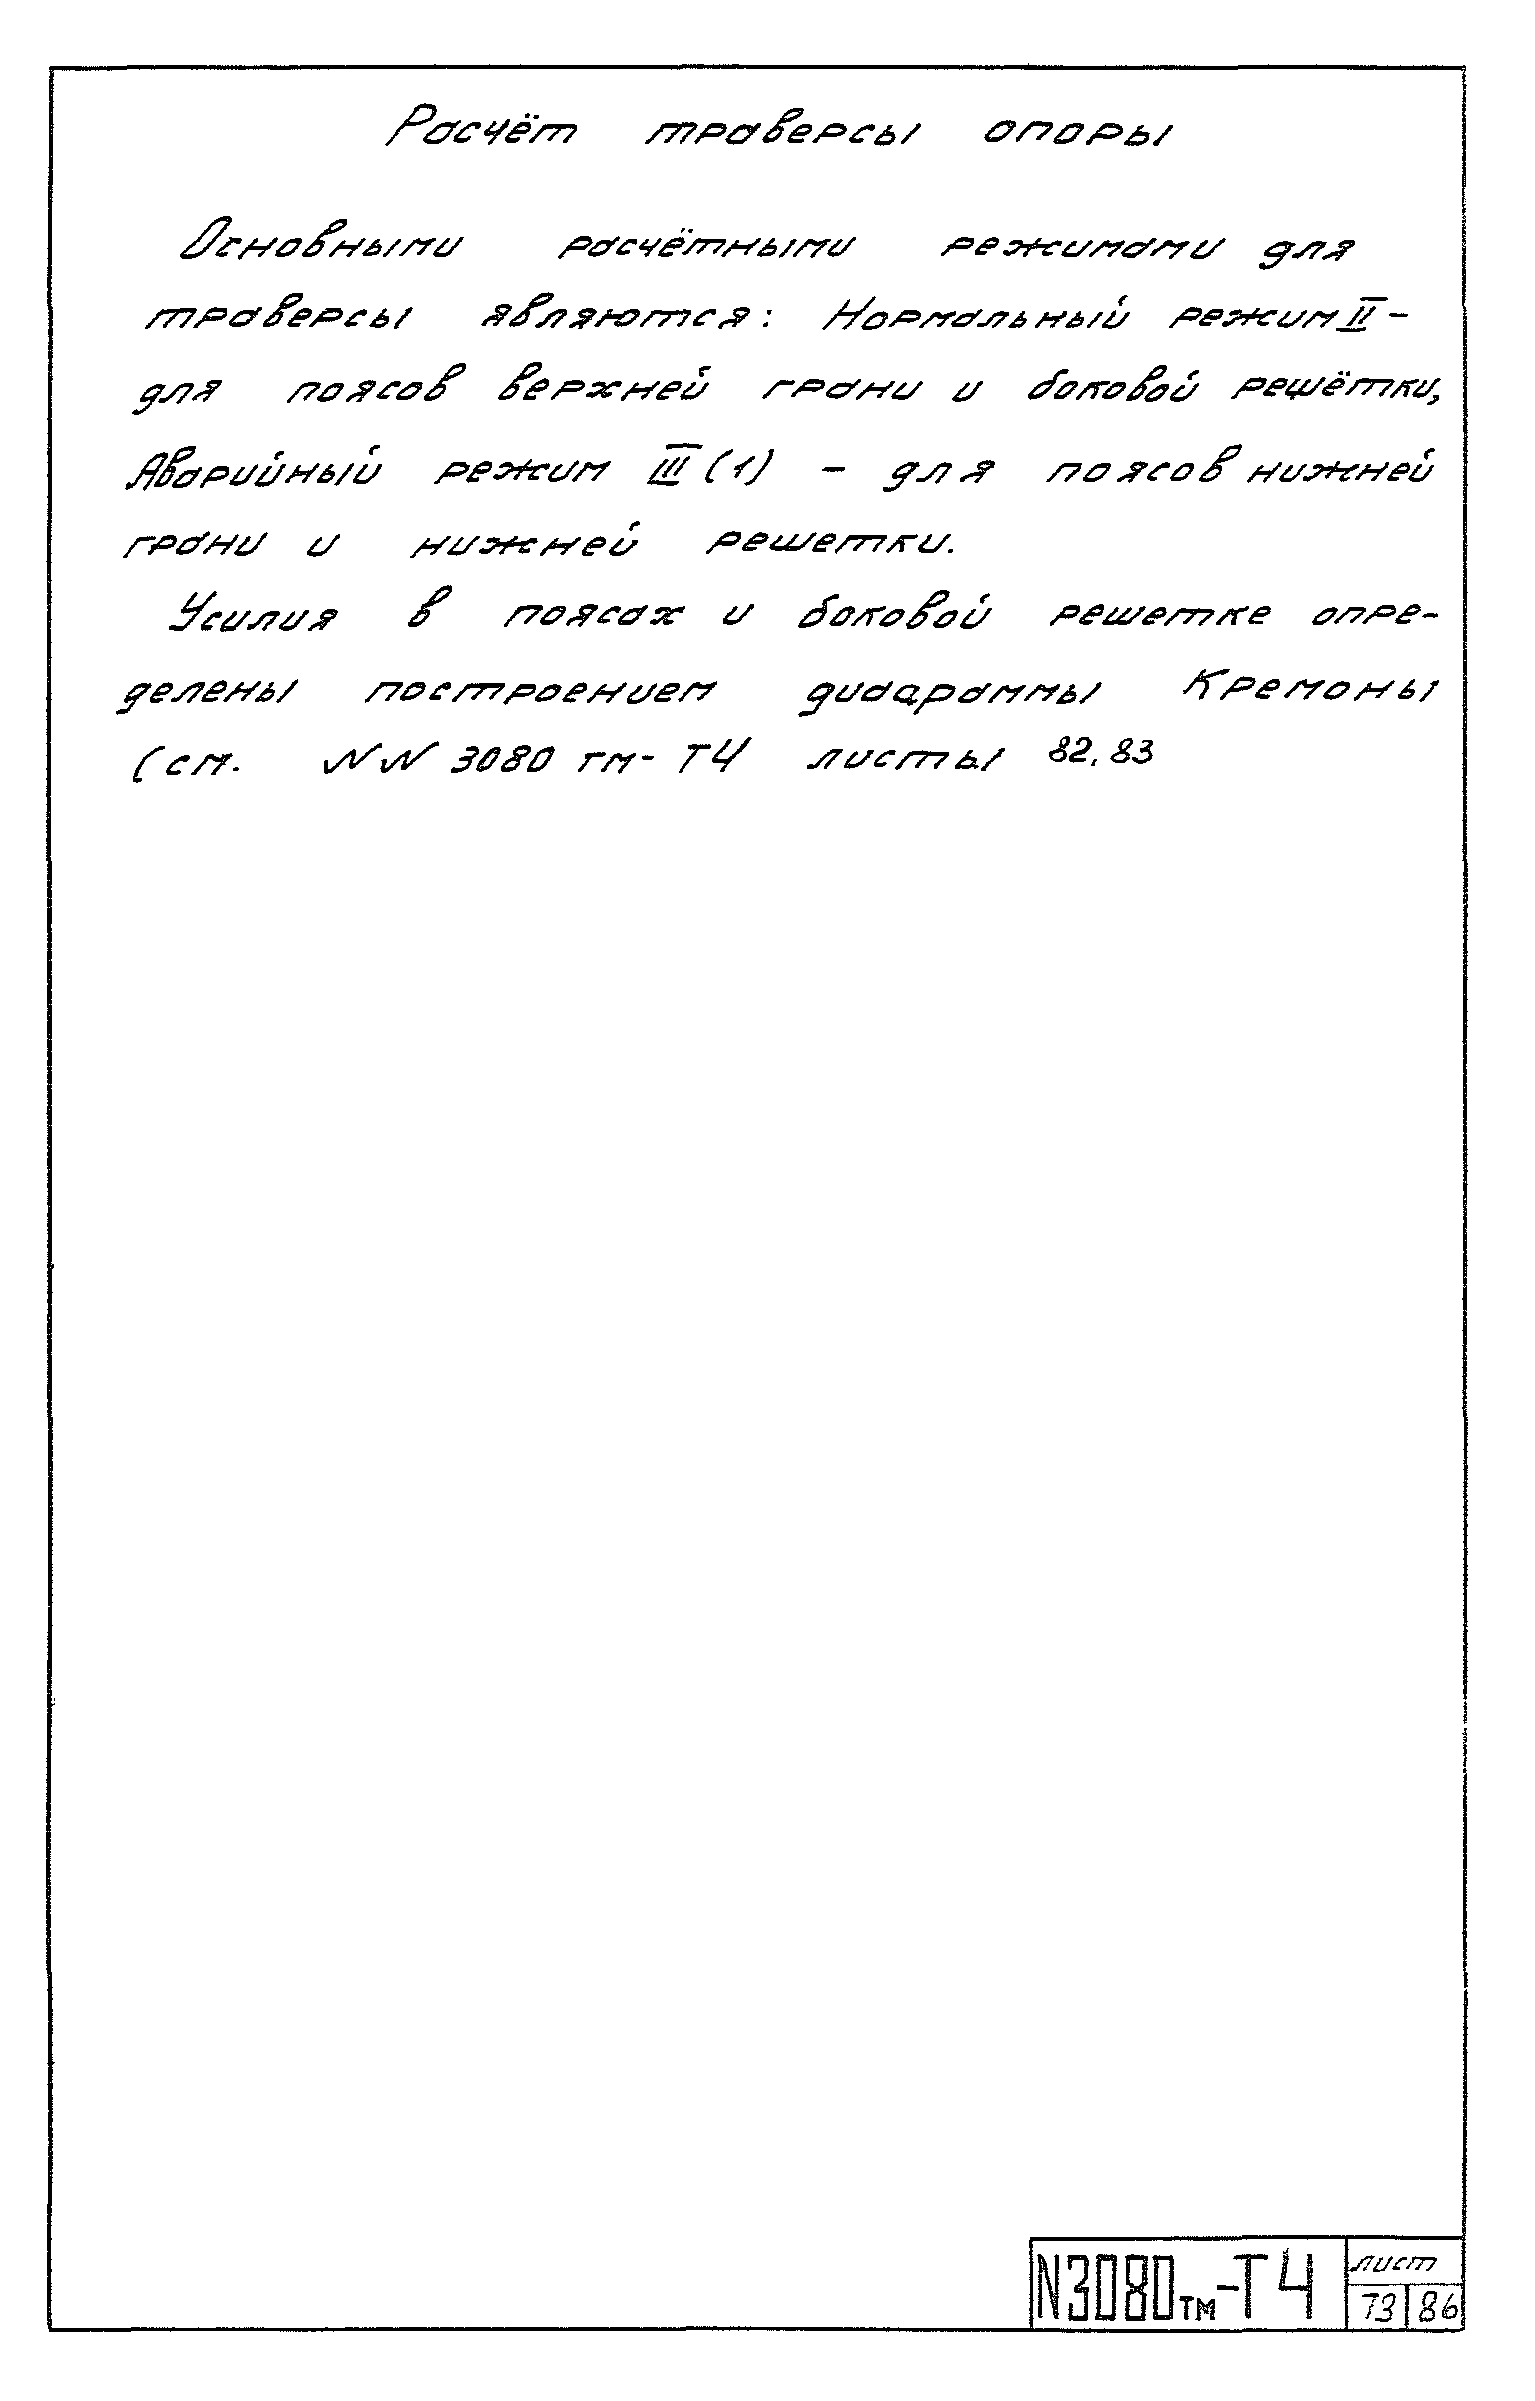 Расчёт траверсы опоры
Основными расчётными режимами для
траверсы являются: Нормальный режим II –
для поясов верхней грани и боковой решётки,
Аварийный режим III (1) – для поясов нижней
грани и нижней решетки.
Усилия в поясах и боковой решетке опре-
делены построением диаграммы Кремоны
(см. NN 3080 тм- Т4 листы 82, 83
N3080тм-Т4
лист
73 86